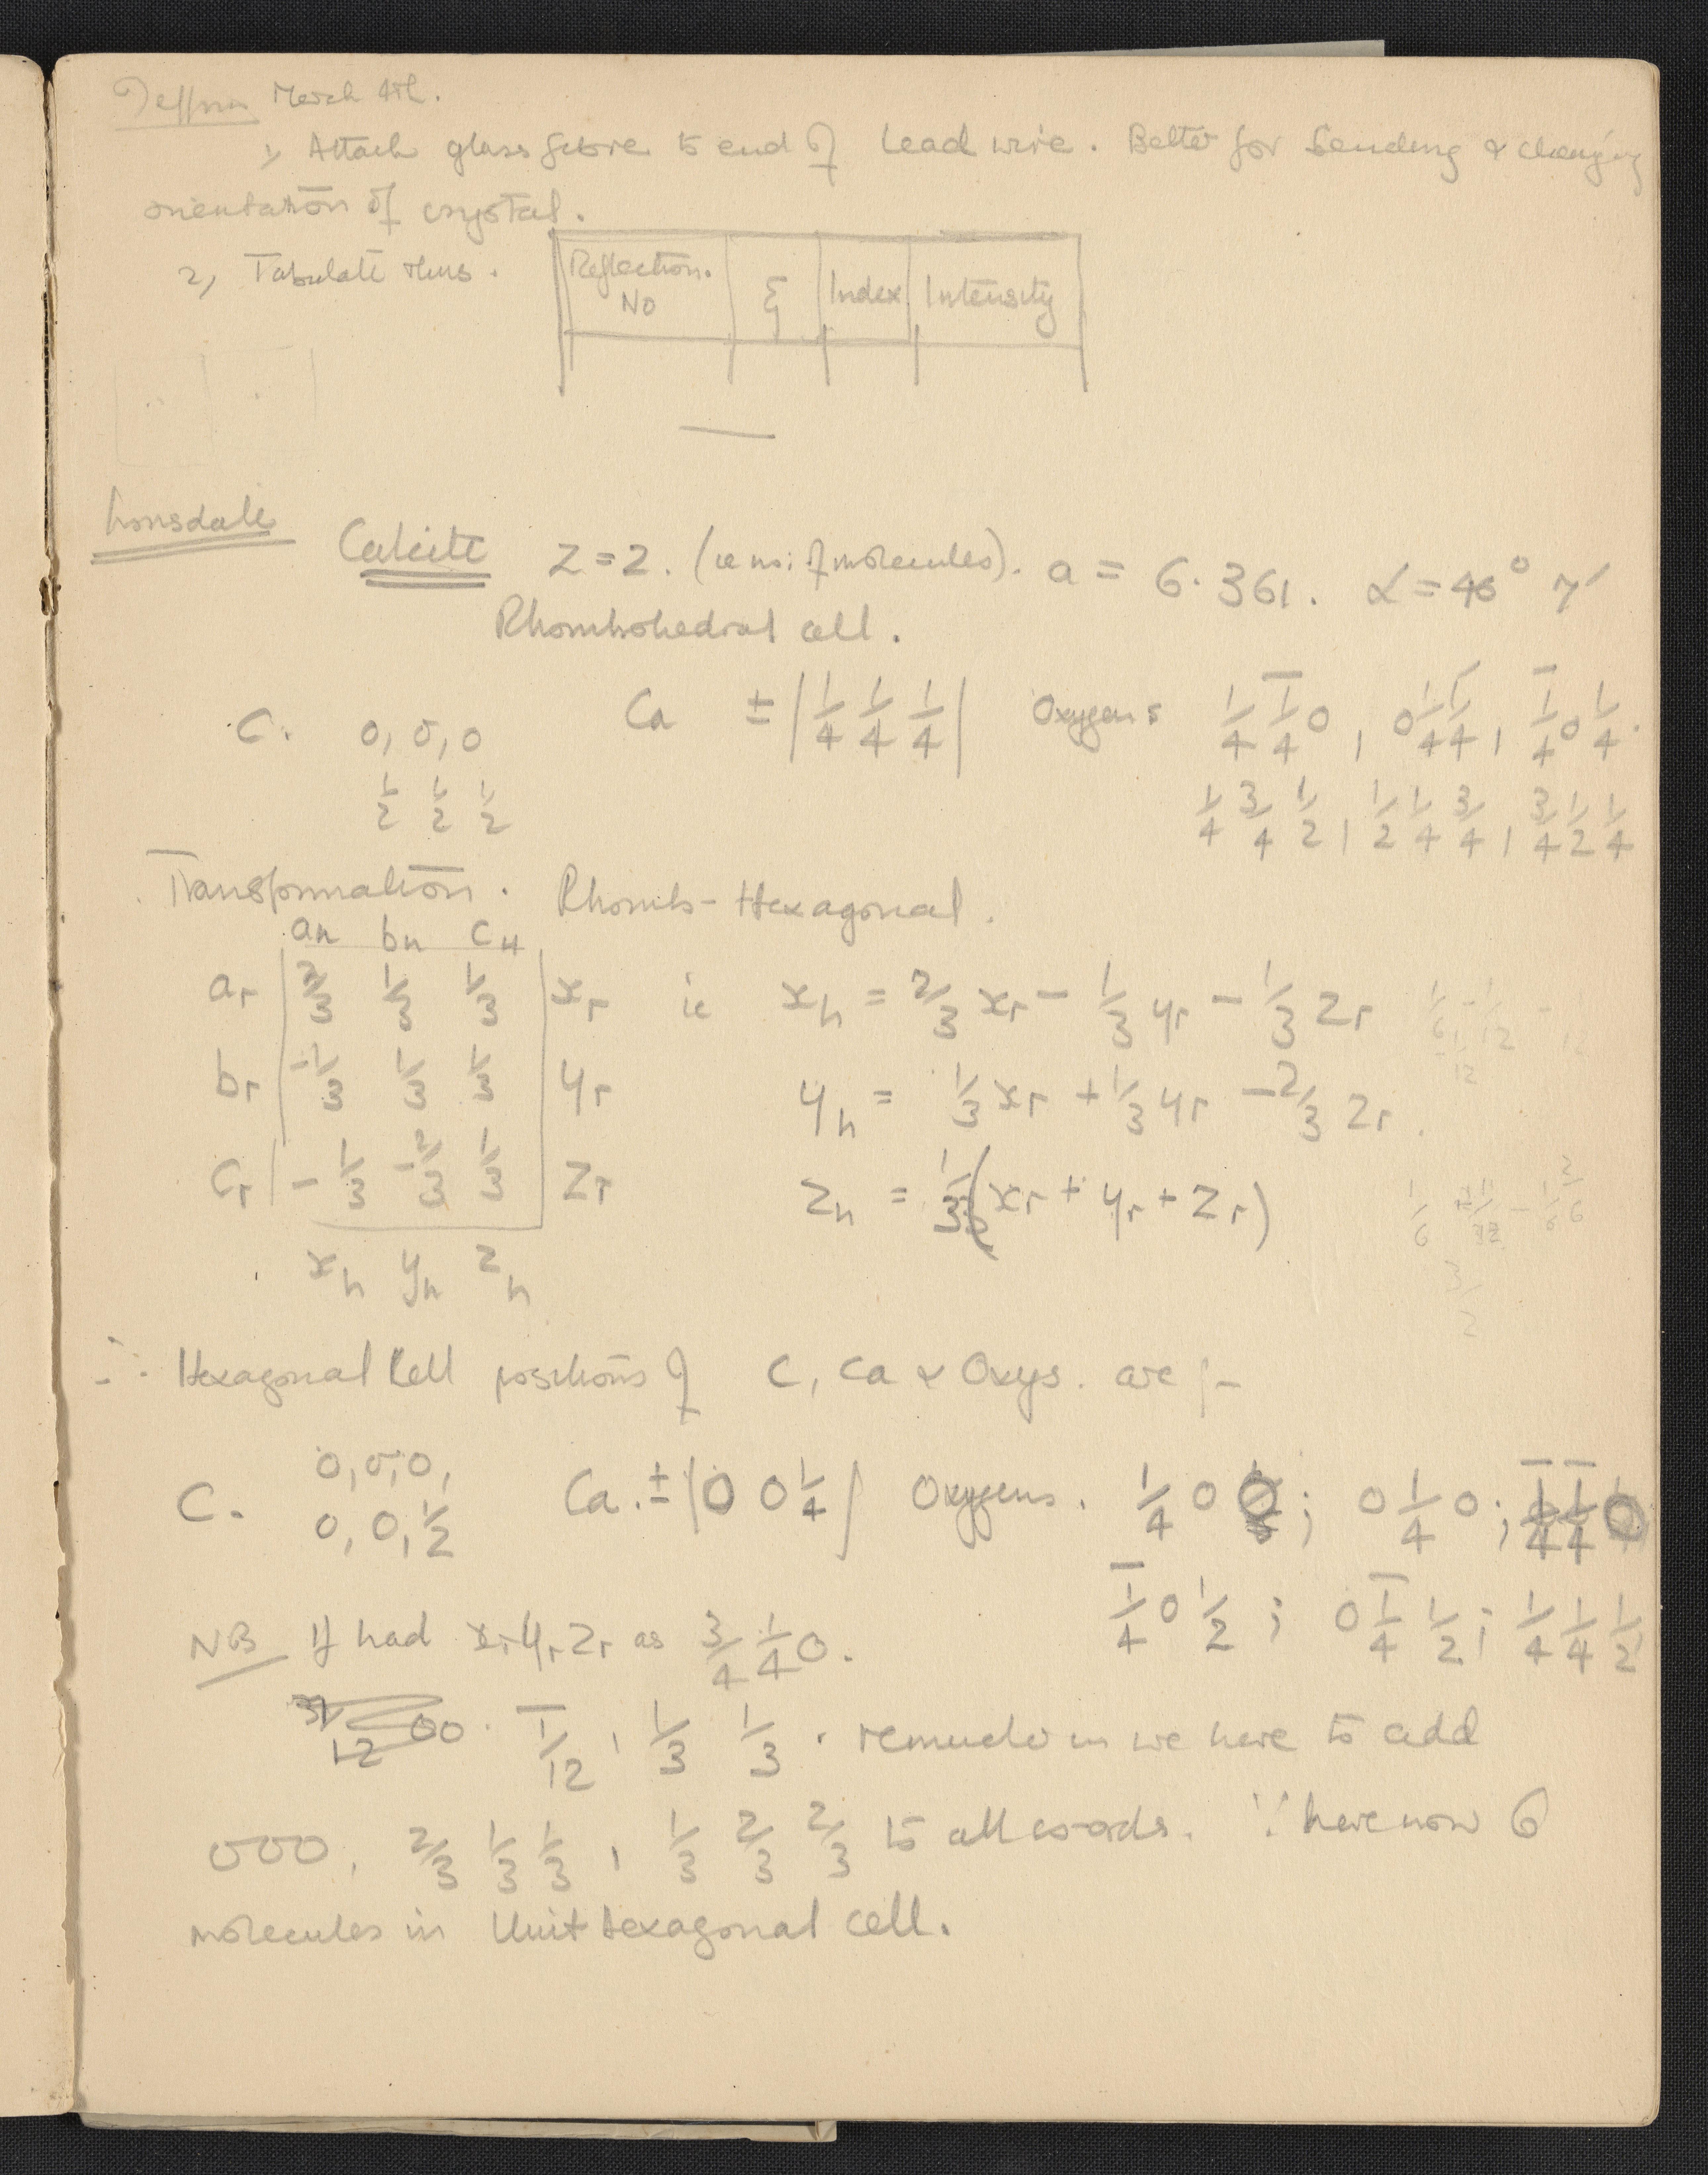 March 4th.
1, Attach glass fibre to end of lead wire. Better for bending & changing
orientation of crystal.
2, Tabulate thus.
Reflection. No | ξ | Index | Intensity
Lonsdale
Calcite Z = 2. (ie no: of molecules). a = 6.361. α = 46° 7′
Rhombohedral cell.
C. 0, 0, 0 Ca ± |1/4 1/4 1/4| Oxygens 1/4 1̄/4 0, 0 1/4 1̄/4, 1̄/4 0 1/4.
1/2 1/2 1/2 1/4 3/4 1/2, 1/2 1/4 3/4, 3/4 1/2 1/4
Transformation. Rhomb-Hexagonal.
aH bH cH
ar 2/3 1/3 1/3 xr ie xh = 2/3 xr - 1/3 yr - 1/3 zr
br -1/3 1/3 1/3 yr yh = 1/3 xr + 1/3 yr - 2/3 zr.
cr -1/3 -2/3 1/3 zr zh = 1/3 (xr + yr + zr)
xh yh zh
∴ Hexagonal Cell positions of C, Ca & Oxys. are :-
C. 0, 0, 0, Ca. ± |0 0 1/4| Oxygens. 1/4 0 0; 0 1/4 0; 1̄/4 1̄/4 0
0, 0, 1/2 1̄/4 0 1/2; 0 1̄/4 1/2; 1/4 1/4 1/2
NB If had xr yr zr as 3/4 1/4 0.
1̄/12, 1/3 1/3. we have to add
000, 2/3 1/3 1/3, 1/3 2/3 2/3 to all co-ords. ∵ have now 6
molecules in Unit Hexagonal cell.